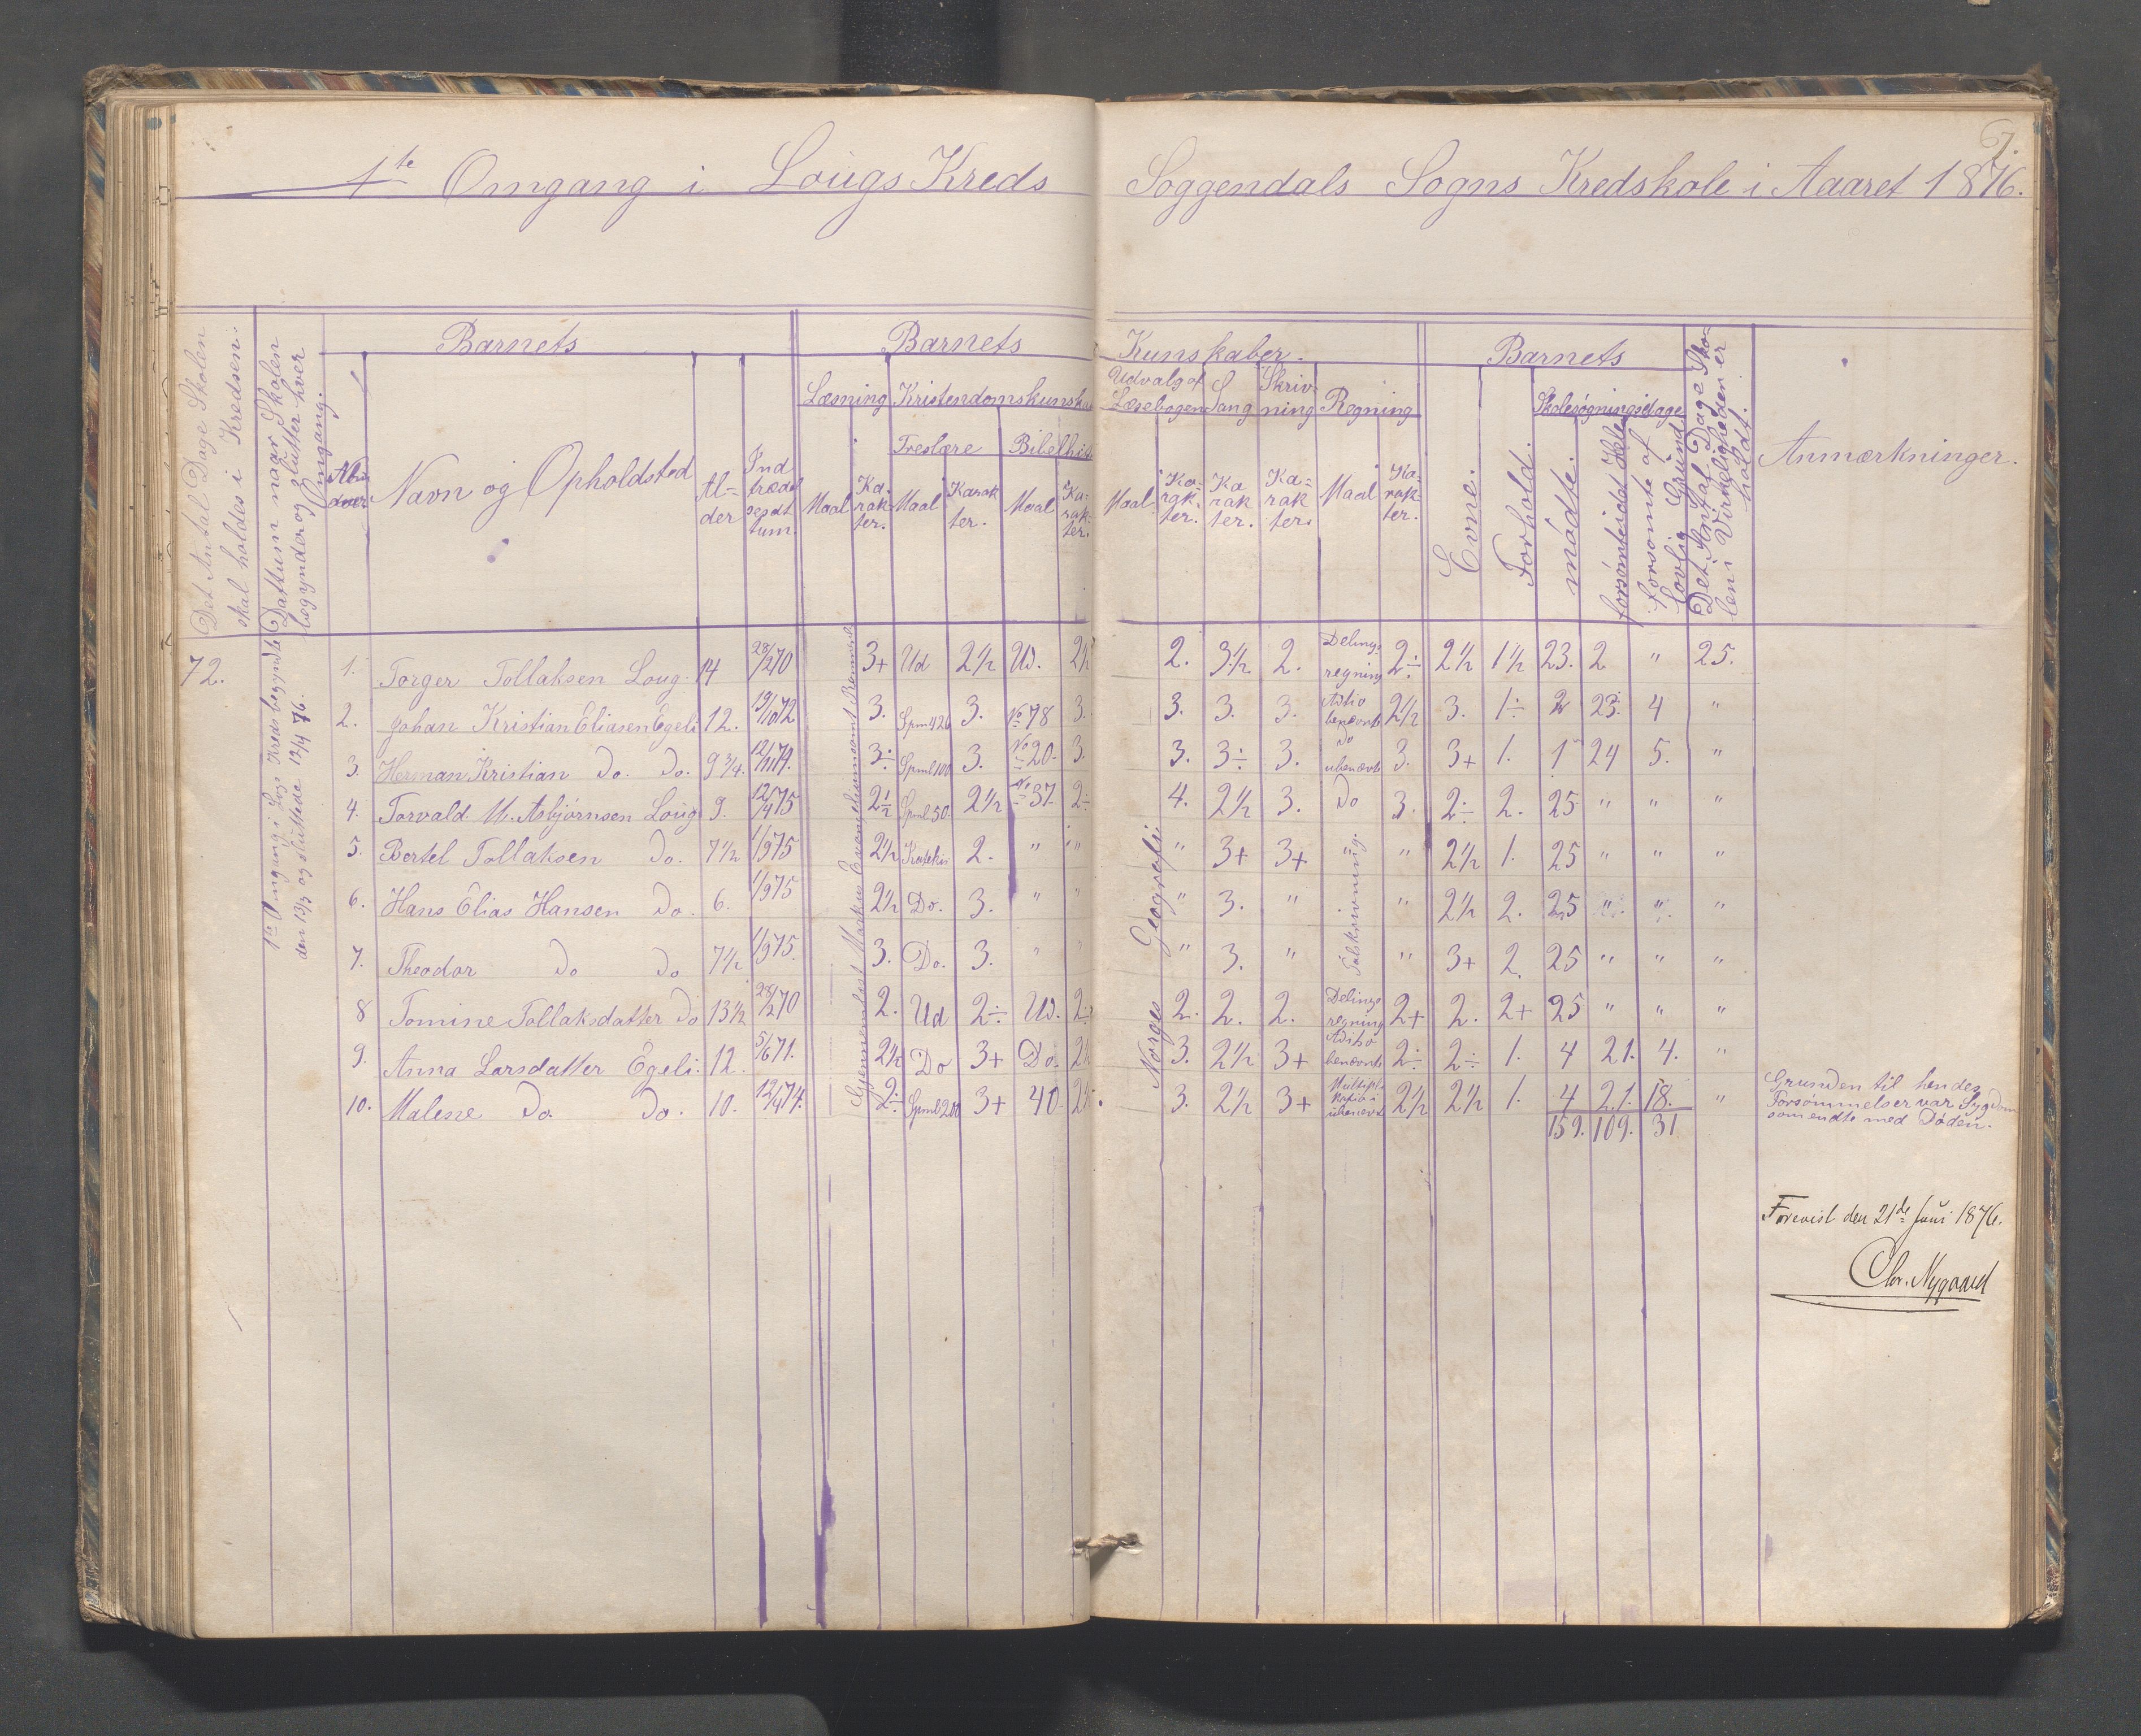 7.
1te Omgang i Lougs Kreds Soggendals Sogns Kredskole i Aaret 1876.
Det Antal Dage Skolen
skal holdes i Kredsen.
Dattum naar Skolen
begynder og slutter hver
Omgang.
Barnets
Navn og Opholdsted
Al-
der
Ind
trædel
sesdt
tum.
Barnets Kunskaber.
Læsning Kristendomskunskab
Udvalg af Læsebogen
Sang
Skriv-
ning
Regning
Treslære Bibelhist
Maal Ka-rak-ter. Maal Karak ter. Maal Ka-rak-ter.
Maal Ka-rak-ter. Ka rak ter. Ka-rak ter. Maal Ka-rak-ter.
Barnets
Evne.
Forhold.
Skolesøgningsdage
mødte.
forsømte idet Hele
forsømte af
lovlig Grund
Det Antal Dage Sko-
len i Virkeligheden er
holdt.
Anmærkninger.
72.
1te Omgang i Logs Kreds begyndte
den 13/3 og sluttede 12/4 76.
Gjennemlæst Markus Evangelium samt
Norges Geografi
1. Torger Tollaksen Loug. 14 28/2 70 3+ Ud 2½ Ud. 2½ 2. 3½ 2. Delings regning 2÷ 2½ 1½ 23. 2 " 25.
2. Johan Kristian Eliasen Egeli 12. 19/10 72 3. Spm 426 3. No 78 3. 3. 3. 3. Aditio benævnte 2½ 3. 1÷ 2 23. 4 "
3. Herman Kristian Do. Do. 9¾. 12/11 74. 3÷ Spml 100 3. No 20. 3. 3. 3÷ 3. Do ubenævnte 3. 3+ 1. 1 24 5. "
4. Torvald M. Asbjørnsen Loug 9. 12/4 75 2½ Spml 50. 2½ No 37. 2÷ 4. 2½ 3. Do 3. 2÷ 2. 25 " " "
5. Bertel Tollaksen Do. 7½ 1/9 75 2½ Kateki 2. " " " 3+ 3+ Talskrivning " 2½ 1. 25 " " "
6. Hans Elias Hansen Do. 6. 1/9 75 2½ Do. 3. " " " 3. " " 2½ 2. 25 " " "
7. Theodor Do Do 7½ 1/9 75. 3. Do. 3. " " " 3. " " 3+ 2. 25 " " "
8 Tomine Tollaksdatter Do 13½ 28/2 70 2. Ud 2÷ Ud. 2÷ 2. 2. 2. Delings regning 2+ 2. 2+ 25 " " "
9. Anna Larsdatter Egeli. 12. 5/6 71. 2½ Do 3+ Do. 2½ 3. 2½ 3+ Aditio benævnte 2÷ 2÷ 1. 4 21. 4. "
10. Malene Do. Do. 10. 12/4 74. 2÷ Spml 200 3+ 40 2½ 3. 2½ 3+ Multipli kation ubenævnt 2½ 2½ 1. 4 21. 18. "
Grunden til hendes
Forsømmelser var Sygdom
som endte med Døden.
159. 109. 31
Forevist den 21de Juni 1876.
Chr. Nygaard